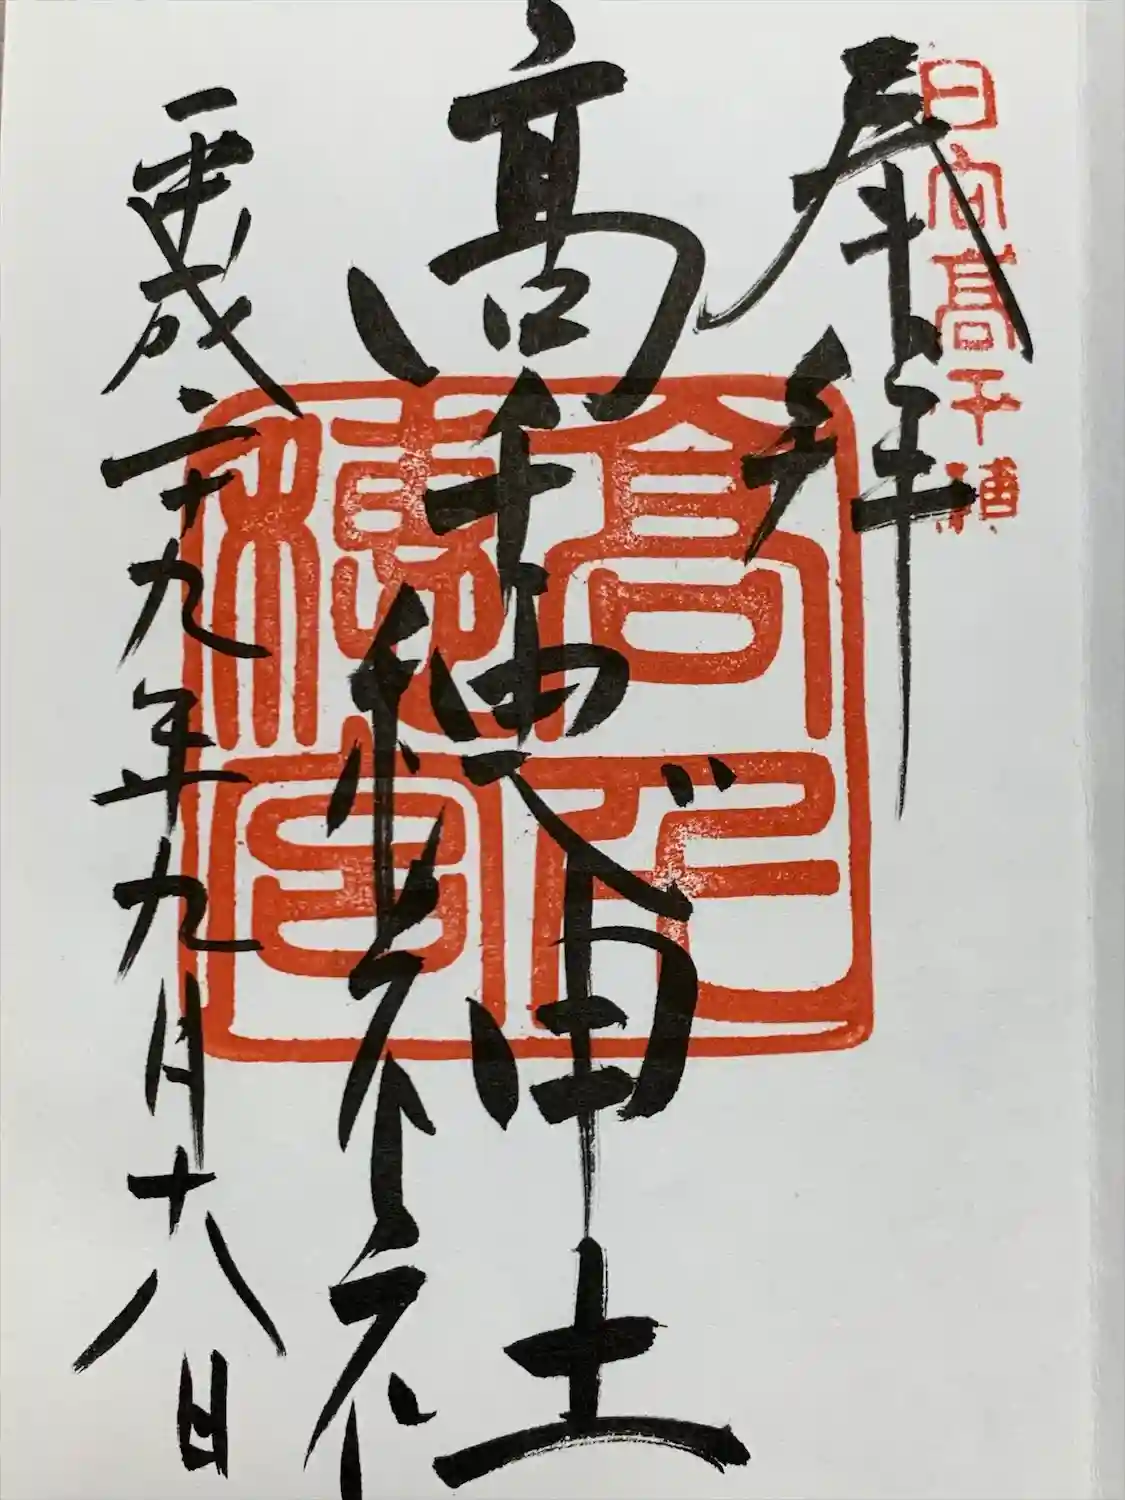 日向高千穂
奉拝
高千穂神社
平成二十九年九月十八日
高千穂宮